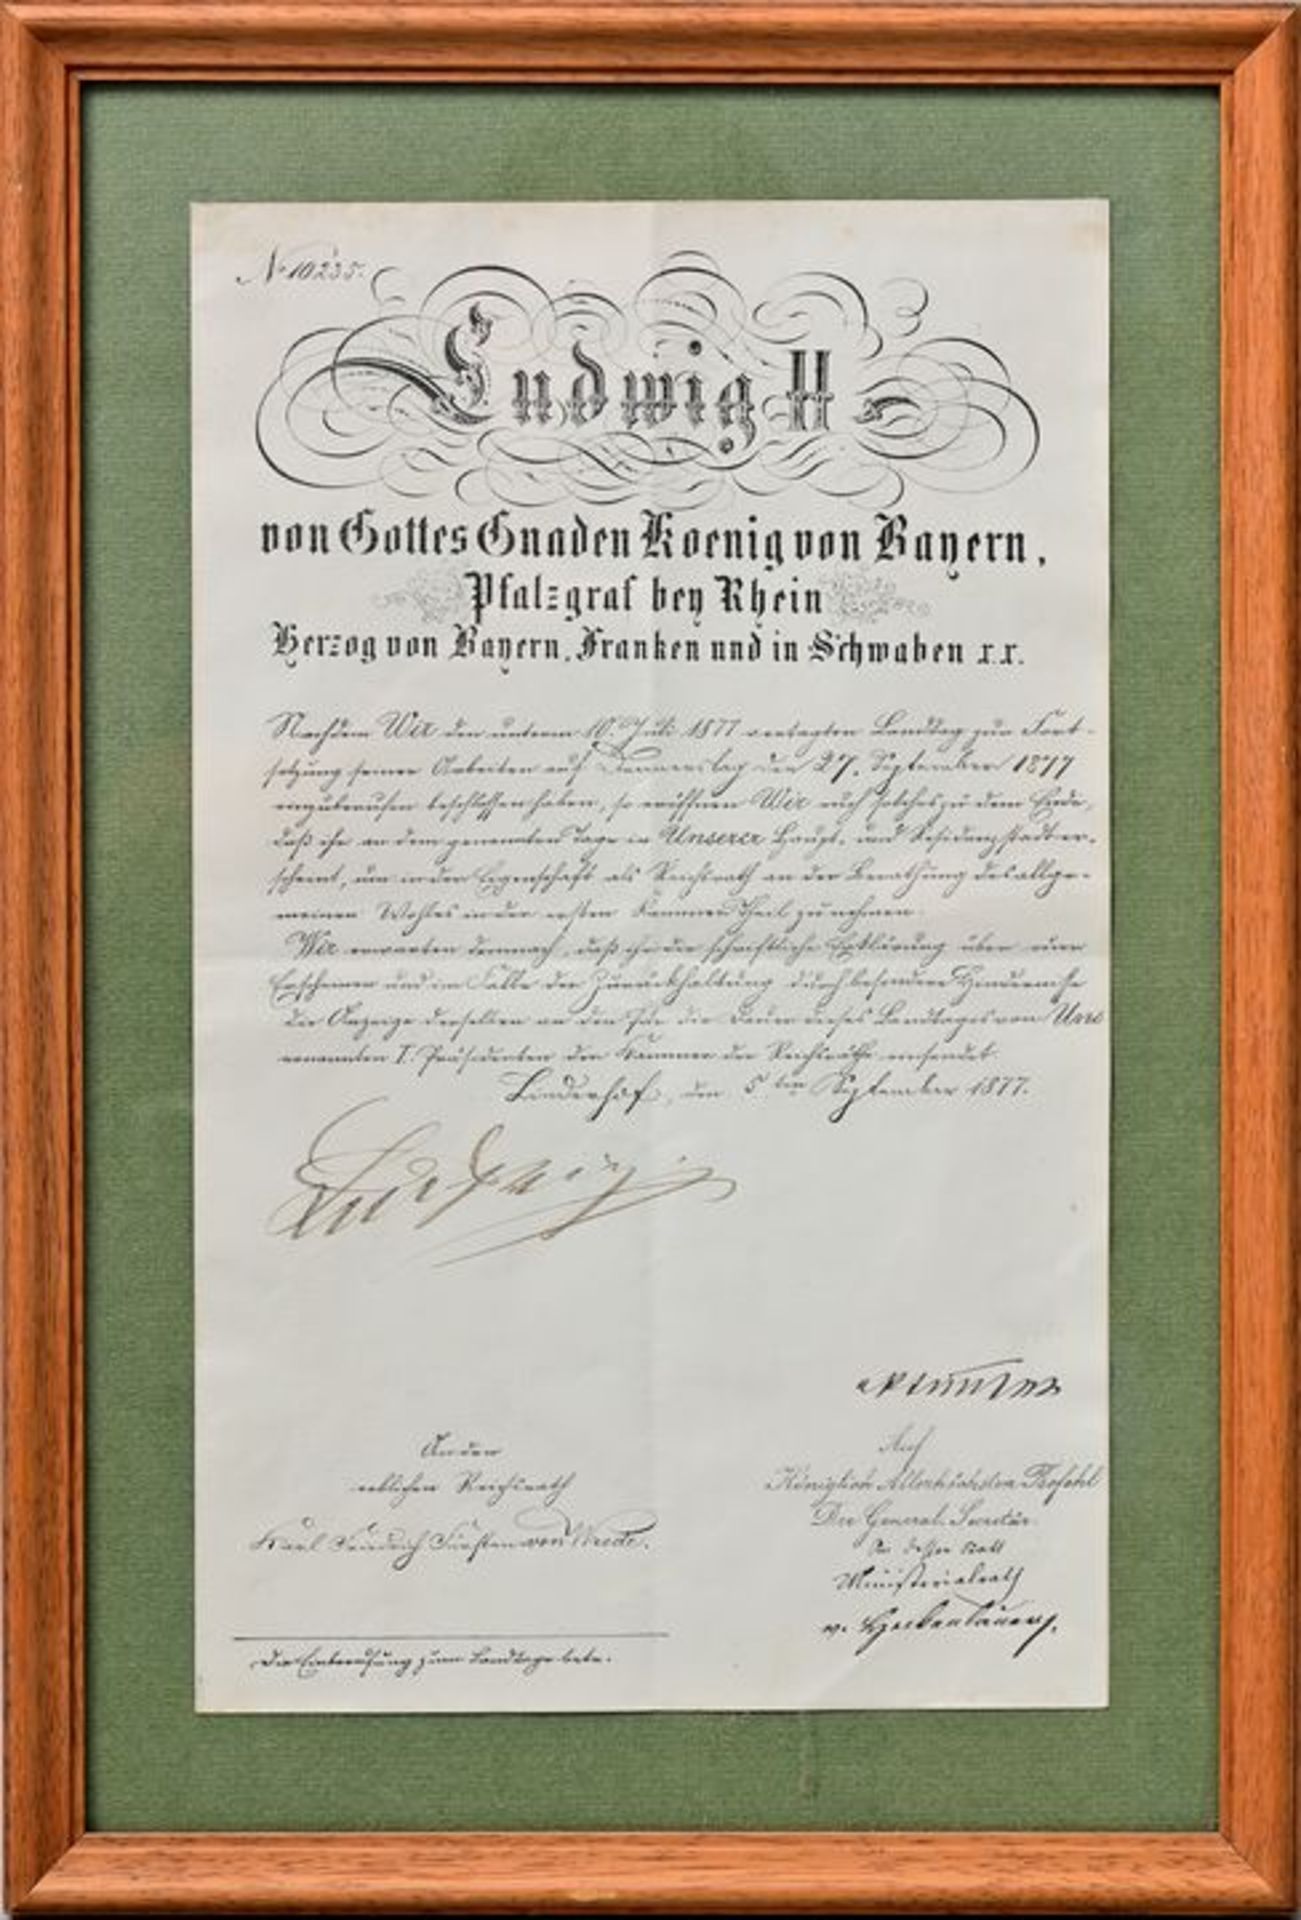 No 10235.
Ludwig II
von Gottes Gnaden Koenig von Bayern,
Pfalzgraf bey Rhein
Herzog von Bayern, Franken und in Schwaben x.x.
Nachdem Wir den unterm 10. Juli 1877 vertagten Landtag zur Fort-
setzung seiner Arbeiten auf Donnerstag den 27. September 1877
einzuberufen beschlossen haben, so eröffnen Wir euch solches zu dem Ende,
daß ihr an dem genannten Tage in Unserer Haupt- und Residenzstadt er-
scheint, um in der Eigenschaft als Reichsrath an der Berathung des allge-
meinen Wohles in der ersten Kammer Theil zu nehmen.
Wir erwarten demnach, daß ihr die schriftliche Erklärung über euer
Erscheinen und im Falle der Zurückhaltung durch besondere Hindernisse
die Anzeige derselben an den für die Dauer dieses Landtages von Uns
ernannten I. Präsidenten der Kammer der Reichsräthe einsendet.
Linderhof, den 5ten September 1877.
Ludwig
An den
erblichen Reichsrath
Karl Friedrich Fürsten von Wrede.
Auf
Königlich Allerhöchsten Befehl
Der General-Secretär.
An dessen Statt
Ministerialrath
Die Einberufung zum Landtage betr.